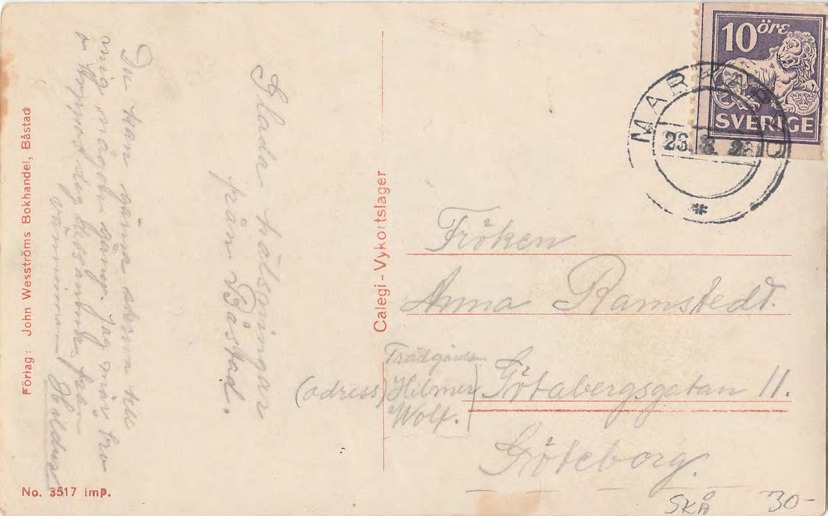 Glada hälsningar
från Båstad.
Du kan gärna skriva till
mig någon gång. Jag mår bra
o hoppas dig detsamma. från
väninnan Hildur
Förlag: John Wesströms Bokhandel, Båstad
No. 3517 Imp.
Calegi-Vykortslager
10 öre
SVERIGE
MAR
23. 8. 
Fröken
Anna Ramstedt.
Trädgården
(adress) Hilmer
Wolf.
Götabergsgatan 11.
Göteborg.
SKÅ 30-